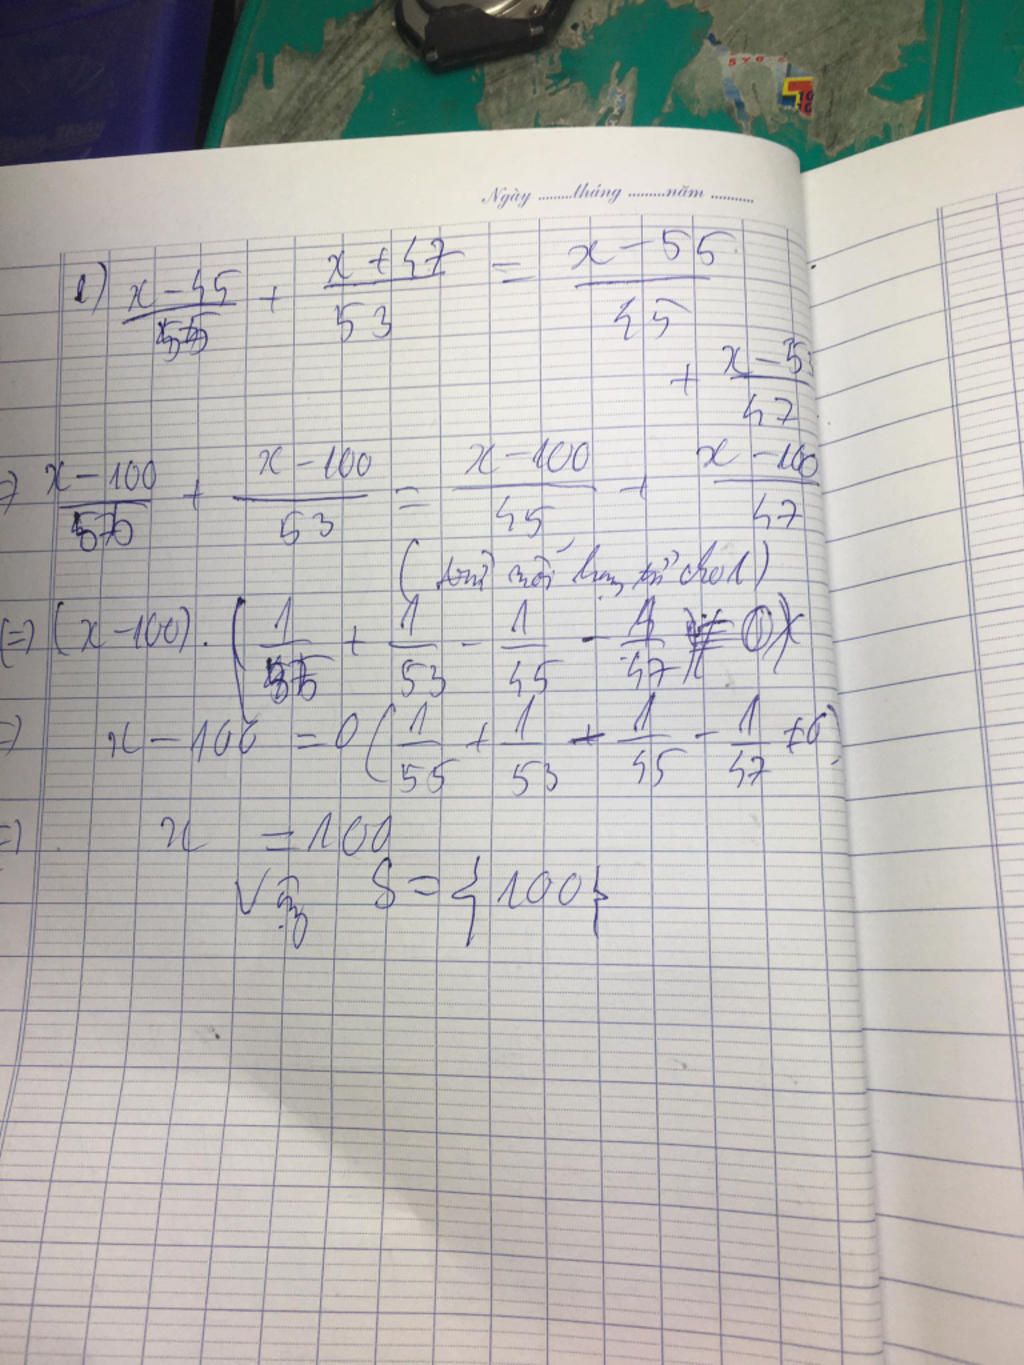 5 Y 0
10
Ngày ......... tháng ......... năm ..........
e) x - 45 / 55 + x + 47 / 53 = x - 55 / 45
+ x - 53 / 47
=> x - 100 / 55 + x - 100 / 53 = x - 100 / 45 + x - 100 / 47
( trừ mỗi hạng tử cho 1 )
(=> ( x - 100 ) . ( 1 / 55 + 1 / 53 - 1 / 45 - 1 / 47
=> x - 100 = 0 ( 1 / 55 + 1 / 53 - 1 / 45 - 1 / 47 ≠ 0 )
=> x = 100
Vậy S = { 100 }